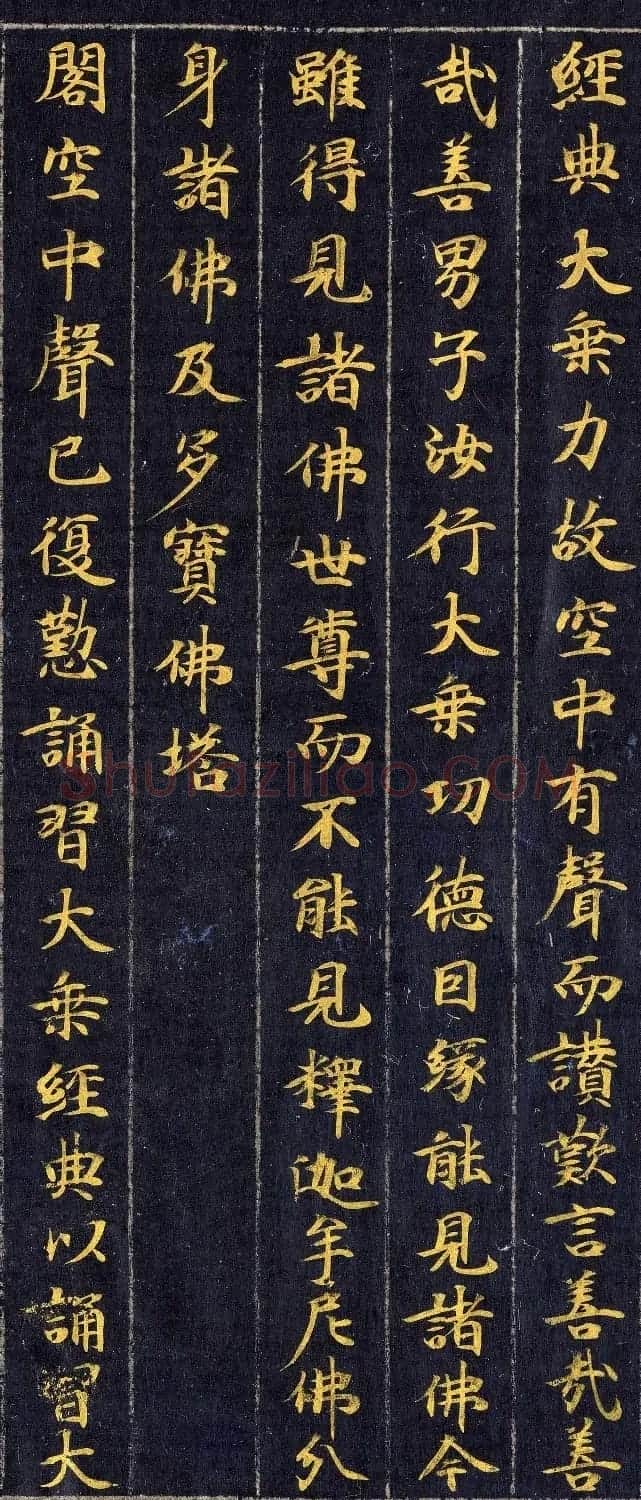 經典大乗力故空中有聲而讃歎言善哉善
哉善男子汝行大乗功德因緣能見諸佛今
雖得見諸佛世尊而不能見釋迦牟尼佛分
身諸佛及多寶佛塔
閣空中聲已復懃誦習大乗經典以誦習大
ShuFaziliao.COM